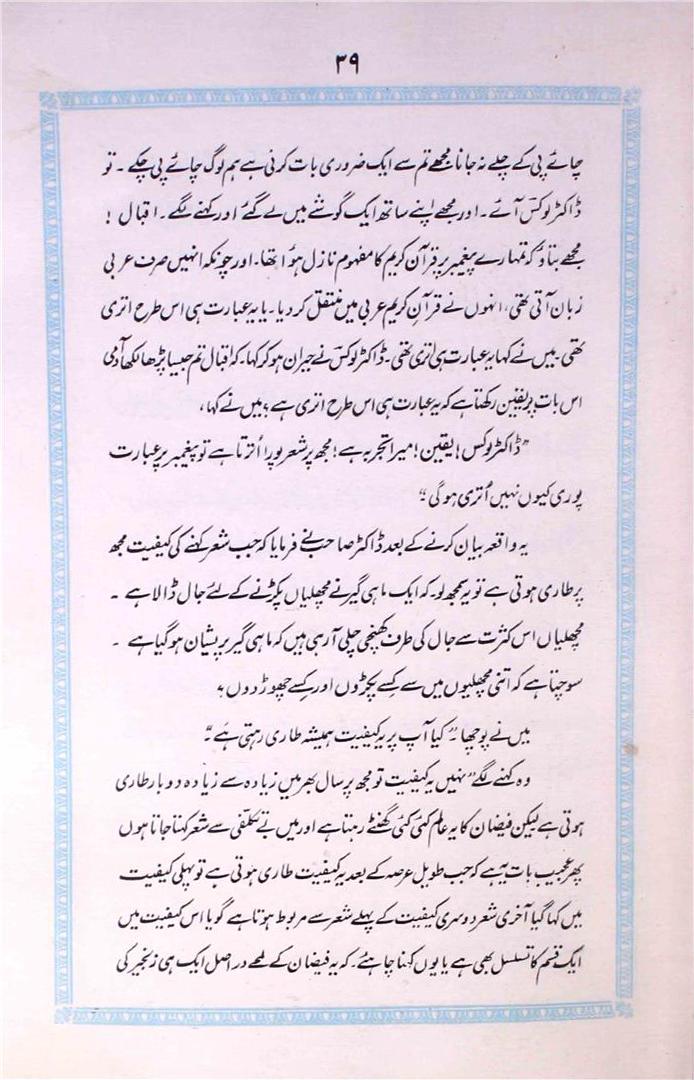 ۳۹
چائے پی کے چلے نہ جانا مجھے تم سے ایک ضروری بات کرنی ہے ہم لوگ چائے پی چکے ۔ تو
ڈاکٹر لوکس آئے ۔ اور مجھے اپنے ساتھ ایک گوشے میں لے گئے اور کہنے لگے ۔ اقبال !
مجھے بتاؤ کہ تمہارے پیغمبر پر قرآن کریم کا مفہوم نازل ہوُا تھا۔ اور چونکہ انہیں صرف عربی
زبان آتی تھی، انہوں نے قرآن کریم عربی میں منتقل کر دیا ۔ یا یہ عبارت ہی اس طرح اتری
تھی ۔ میں نے کہا یہ عبارت ہی اتری تھی ۔ ڈاکٹر لوکس نے حیران ہو کر کہا۔ کہ اقبال تم جیسا پڑھا لکھا آدمی
اس بات پر یقین رکھتا ہے کہ یہ عبارت ہی اس طرح اتری ہے ؟ میں نے کہا ،
”ڈاکٹر لوکس ! یقین ! میرا تجربہ ہے ! مجھ پر شعر پورا اُترتا ہے تو پیغمبر پر عبارت
پوری کیوں نہیں اُتری ہو گی ؟“
یہ واقعہ بیان کرنے کے بعد ڈاکٹر صاحب نے فرمایا کہ جب شعر کہنے کی کیفیت مجھ
پر طاری ہوتی ہے تو یہ سمجھ لو۔ کہ ایک ماہی گیر نے مچھلیاں پکڑنے کے لئے جال ڈالا ہے ۔
مچھلیاں اس کثرت سے جال کی طرف کھنچی چلی آ رہی ہیں کہ ماہی گیر پریشان ہو گیا ہے ۔
سوچتا ہے کہ اتنی مچھلیوں میں سے کسے پکڑوں اور کسے چھوڑ دوں ؟
میں نے پوچھا ۔ ”کیا آپ پر یہ کیفیت ہمیشہ طاری رہتی ہے ۔“
وہ کہنے لگے ”نہیں یہ کیفیت تو مجھ پر سال بھر میں زیادہ سے زیادہ دو بار طاری
ہوتی ہے لیکن فیضان کا یہ عالم کئی کئی گھنٹے رہتا ہے اور میں بے تکلفی سے شعر کہتا جاتا ہوں
پھر عجیب بات یہ ہے کہ جب طویل عرصہ کے بعد یہ کیفیت طاری ہوتی ہے تو پہلی کیفیت
میں کہا گیا آخری شعر دوسری کیفیت کے پہلے شعر سے مربوط ہوتا ہے گویا اس کیفیت میں
ایک قسم کا تسلسل بھی ہے یا یوں کہنا چاہئے ۔ کہ یہ فیضان کے لمحے دراصل ایک ہی زنجیر کی